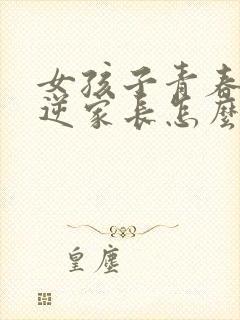 女孩子青春
逆家长怎麽
皇塵